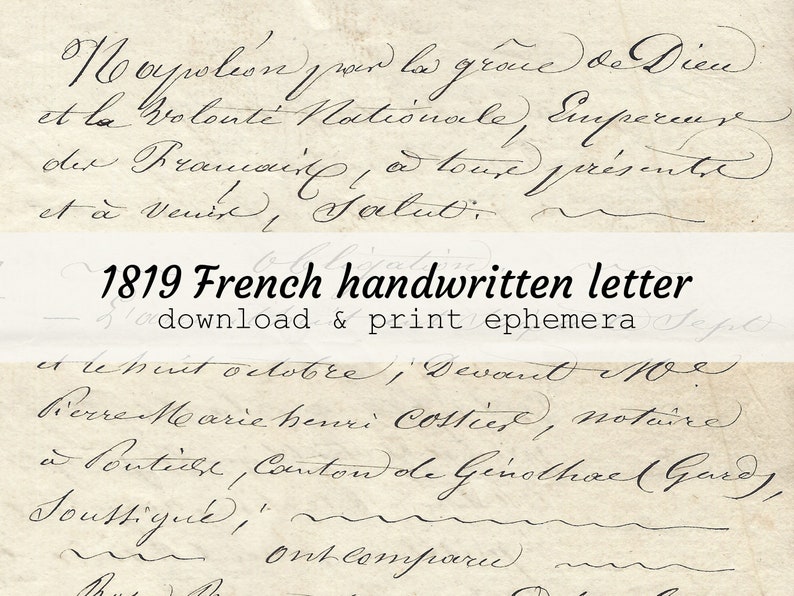 Napoléon par la grâce de Dieu
et la Volonté Nationale, Empereur
des Français, à tous présents
et à venir, Salut.
obligation
1819 French handwritten letter
download & print ephemera
Sept
et le huit octobre ; Devant Me
Pierre Marie henri Costier, notaire
à Ponteils, Canton de Génolhac (Gard),
Soussigné ;
ont comparu